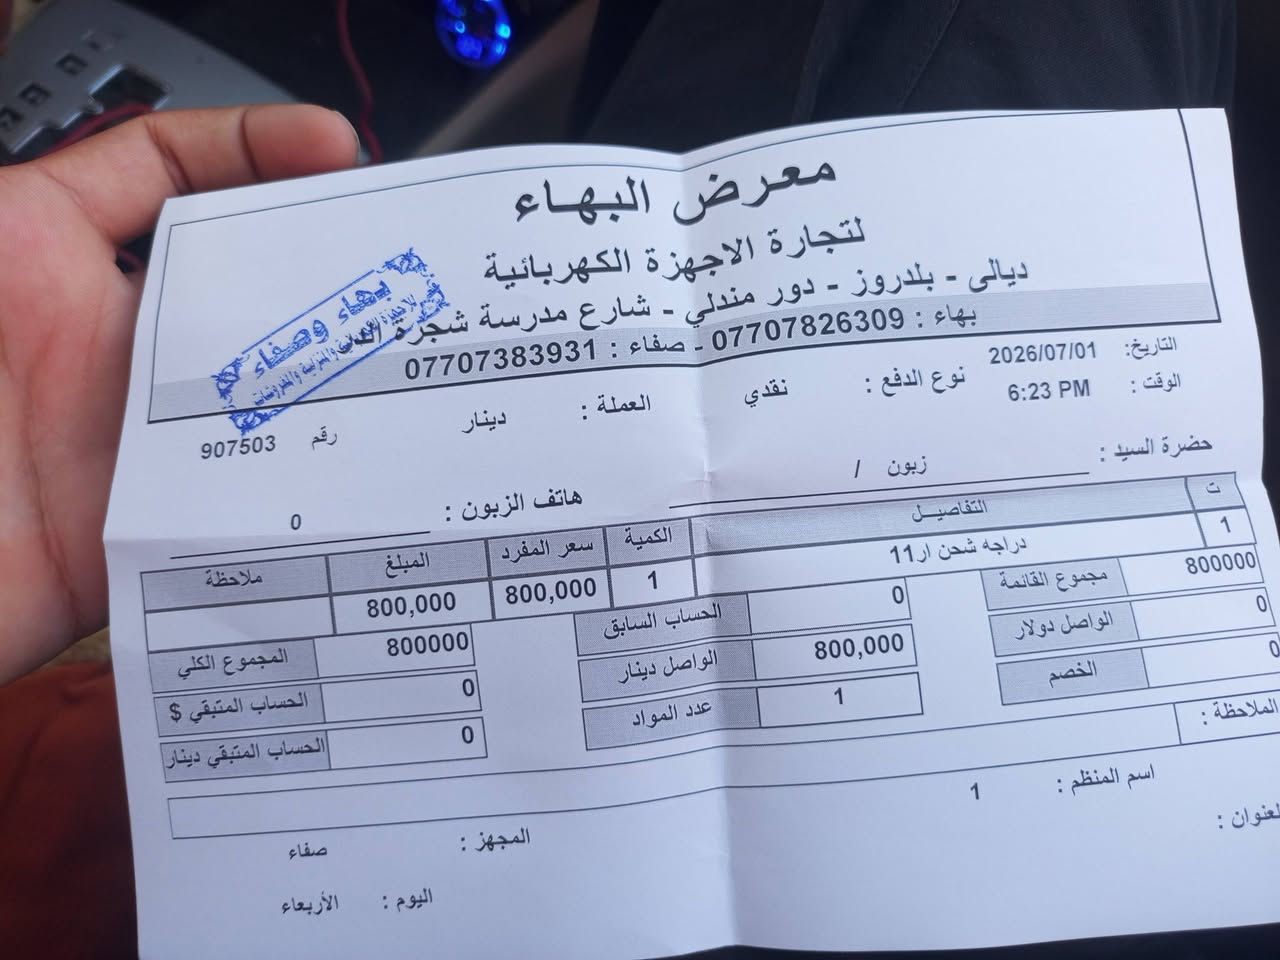 معرض البهاء
لتجارة الاجهزة الكهربائية
ديالى - بلدروز - دور مندلي - شارع مدرسة شجرة الدر
بهاء : 07707826309 - صفاء : 07707383931
بهاء وصفاء
للاجهزة الكهربائية والمنزلية والمفروشات
التاريخ: 2026/07/01
الوقت : 6:23 PM نوع الدفع : نقدي العملة : دينار رقم 907503
حضرة السيد : زبون / هاتف الزبون : 0
ت التفاصيل الكمية سعر المفرد المبلغ ملاحظة
1 دراجه شحن ار11 1 800,000 800,000
مجموع القائمة 800000 الحساب السابق 0 المجموع الكلي 800000
الواصل دولار 0 الواصل دينار 800,000 الحساب المتبقي $ 0
الخصم 0 عدد المواد 1 الحساب المتبقي دينار 0
الملاحظة :
اسم المنظم : 1 المجهز : صفاء
لعنوان : اليوم : الأربعاء